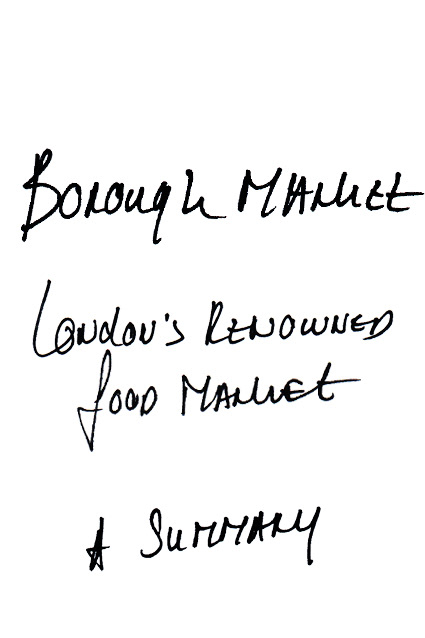 Borough Market
London's Renowned
Food Market
A Summary